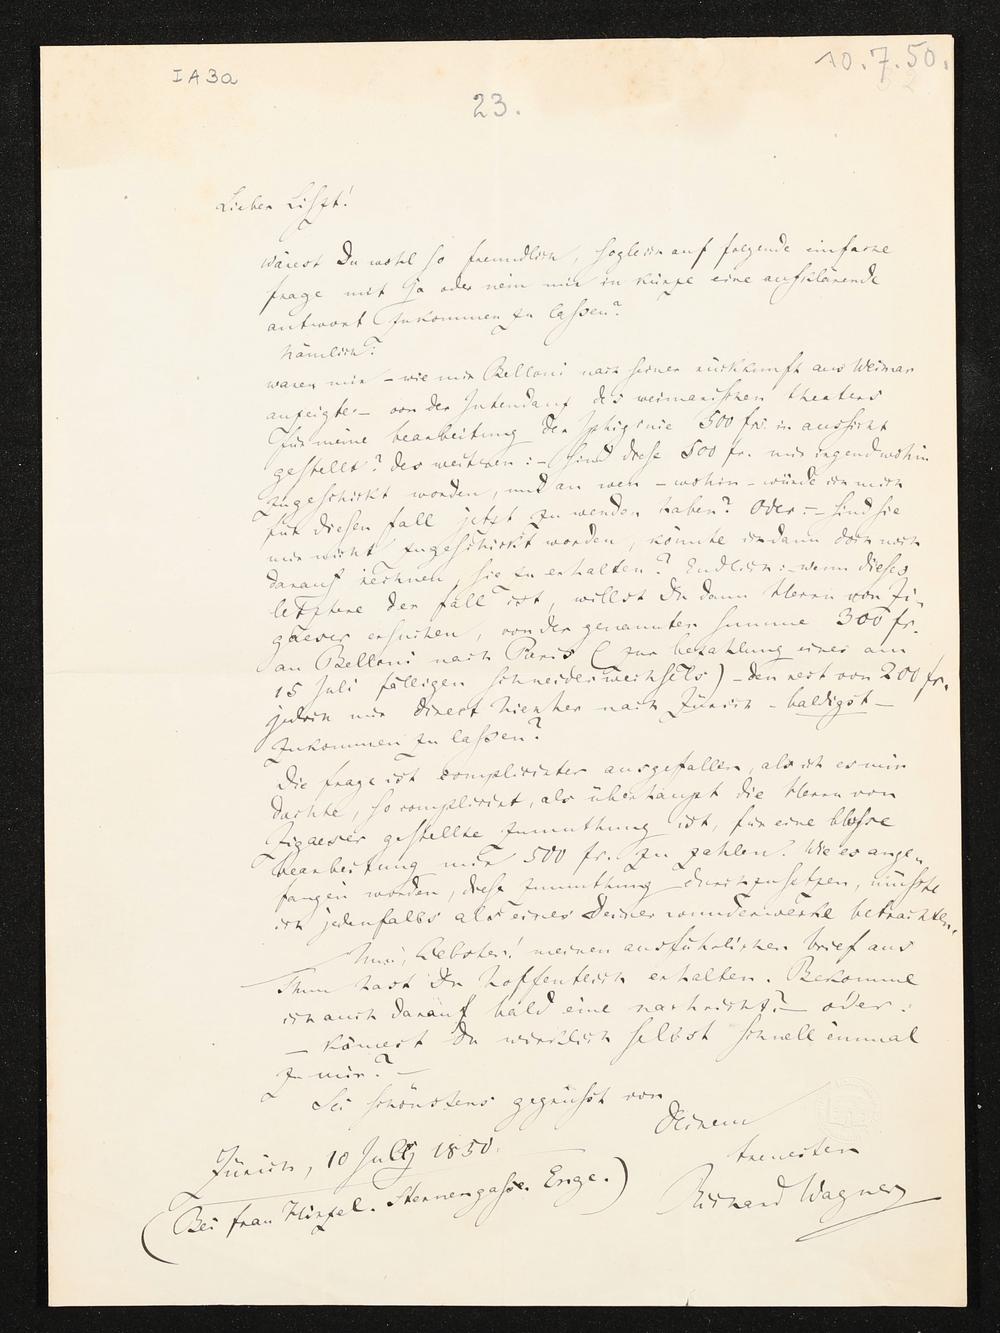 IA3a
10.7.50.
23.
Lieber Liszt!
wärest Du wohl so freundlich, sogleich auf folgende einfache
frage mit ja oder nein mir in kürze eine aufklärende
antwort zukommen zu lassen?
Nämlich:
waren mir – wie mir Belloni nach seiner rückkunft aus Weimar
anzeigte – von der Intendanz des weimarischen theaters
für meine bearbeitung der Iphigenie 500 frs. in aussicht
gestellt? des weiteren: – sind diese 500 fr. mir irgendwohin
zugeschickt worden, und an wen – wohin – würde ich mich
für diesen fall jetzt zu wenden haben? Oder – sind sie
mir nicht zugeschickt worden, könnte ich dann doch noch
darauf rechnen, sie zu erhalten? Endlich: – wenn dieses
letztere der fall ist, willst Du dann Herrn von Zi-
gäesar ersuchen, von der genannten summe 300 fr.
an Belloni nach Paris (zur bezahlung eines am
15 Juli fälligen schneiderwechsels) – den rest von 200 fr.
jedoch mir direct hierher nach Zürich – baldigst –
zukommen zu lassen?
Die frage ist complicirter ausgefallen, als ich es mir
dachte, so complicirt, als überhaupt die Herrn von
Zigaeser gestellte zumuthung ist, für eine blosse
bearbeitung mir 500 fr. zu zahlen. Wie es ange-
fangen worden, diese zumuthung durchzusetzen, müsste
ich jedenfalls als eines Deiner wunderwerke betrachten.
Nun, Liebster! meinen ausführlichen brief aus
Thun hast Du hoffentlich erhalten. Bekomme
ich auch darauf bald eine nachricht? – oder:
– kämest Du wirklich selbst schnell einmal
zu mir? –
Sei schönstens gegrüsst von
Deinem
treuesten
Richard Wagner
Zürich, 10 Julÿ 1850.
(Bei frau Hirzel. Sternengasse. Enge.)